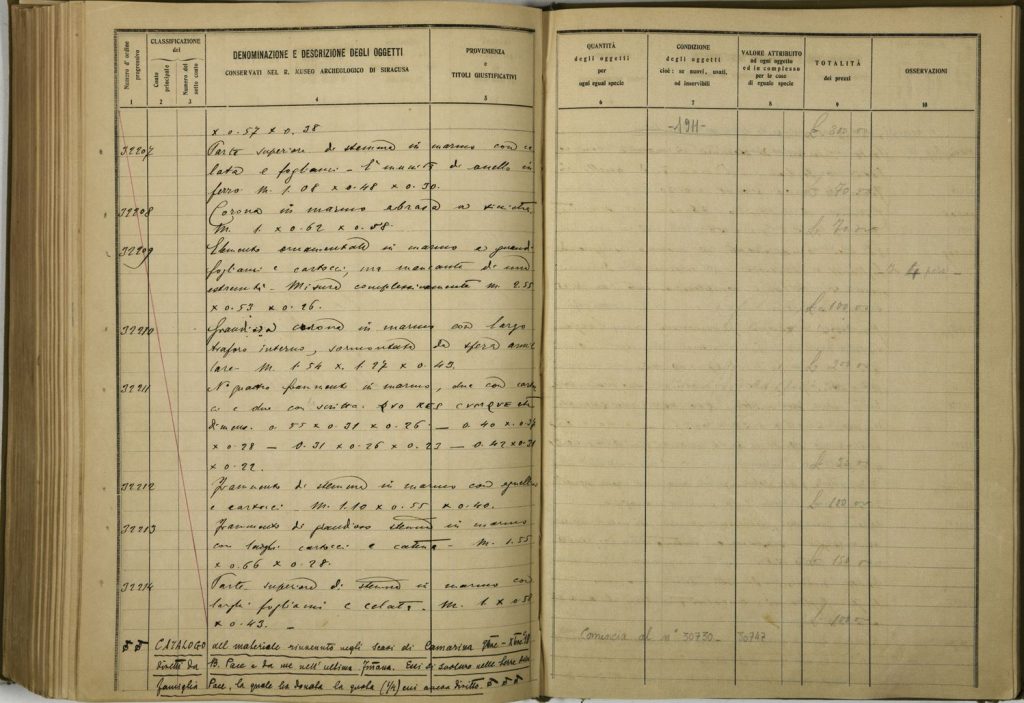 Numero d'ordine progressivo
CLASSIFICAZIONE
del
Conto principale
Numero del sotto conto
DENOMINAZIONE E DESCRIZIONE DEGLI OGGETTI
CONSERVATI NEL R. MUSEO ARCHEOLOGICO DI SIRACUSA
PROVENIENZA
e
TITOLI GIUSTIFICATIVI
1 2 3 4 5
x 0.57 x 0.38
32207 Parte superiore di stemma in marmo con ce
lata e fogliami - di anello in
ferro M. 1.08 x 0.48 x 0.30.
32208 Corona in marmo abrasa a sinistra
M. 1 x 0.62 x 0.58.
32209 Elemento ornamentale in marmo a grandi
fogliami e cartocci, ma mancante di una
estremità - Misura complessivamente M. 2.55
x 0.53 x 0.26.
32210 Grandiosa corona in marmo con largo
traforo interno, sormontata da sfera armil
lare - M. 1.54 x 1.27 x 0.43.
32211 N° quattro frammenti in marmo, due con cartoc
ci e due con scritta. QVO RES CVMQVE
dimens. 0.55 x 0.31 x 0.26 - 0.40 x 0.34
x 0.28 - 0.31 x 0.26 x 0.23 - 0.42 x 0.31
x 0.22.
32212 Frammento di stemma in marmo con
e cartocci - M. 1.10 x 0.55 x 0.40.
32213 Frammento di grandioso stemma in marmo
con larghi cartocci e catena - M. 1.55
x 0.66 x 0.28.
32214 Parte superiore di stemma in marmo con
larghi fogliami e celata - M. 1 x 0.58
x 0.43. -
CATALOGO del materiale rinvenuto negli scavi di Camarina
diretti da B. Pace e da me nell'ultima Essi si svolsero nelle terre della
famiglia Pace, la quale ha donato la quota (1/4) cui aveva diritto.
QUANTITÀ
degli oggetti
per
ogni egual specie
CONDIZIONE
degli oggetti
cioè: se nuovi, usati,
od inservibili
VALORE ATTRIBUITO
ad ogni oggetto
ed in complesso
per le cose
di eguale specie
TOTALITÀ
dei prezzi
OSSERVAZIONI
6 7 8 9 10
-1911-
£ 300.00
£ 70.00
4 pezzi -
£ 100.00
£ 200.00
£ 100.00
£ 150.00
Comincia al n° 30730 - 30747